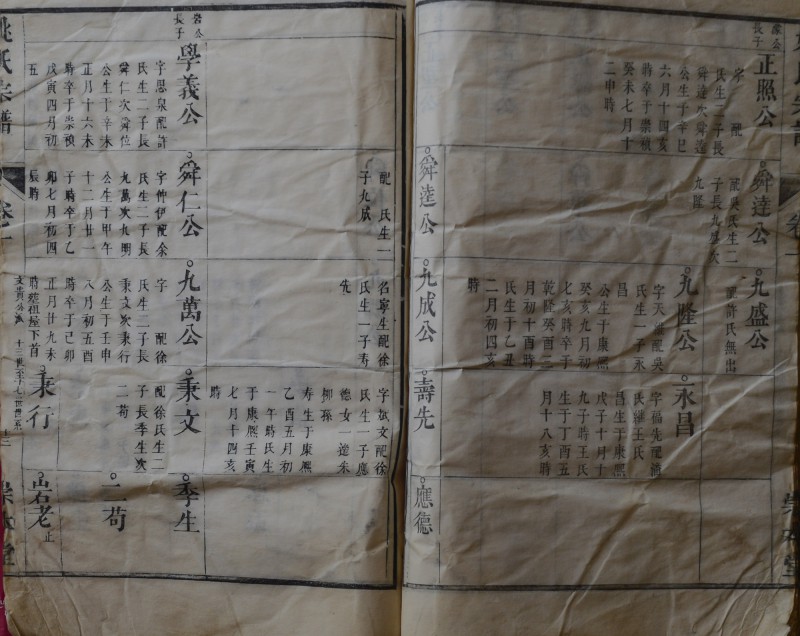 長子
正照公
字 配
氏生二子長
舜達次舜逵
公生于辛巳
六月十四亥
時卒于崇禎
癸未七月十
二申時
舜達公
配吳氏生二
子長九盛次
九隆
舜逵公
九盛公
配許氏無出
九隆公
配吳
氏生一子永
昌
公生于康熙
癸亥九月初
七亥時卒于
乾隆癸酉二
月初十酉時
氏生于乙丑
二月初四亥
時
九成公
永昌
字福先配潘
氏繼王氏
昌生于康熙
戊子十月十
九子時王氏
生于丁酉五
月十八亥時
壽先
應德
配 氏生一
子九成
名寧生配徐
氏生一子壽
先
文配徐
氏生一子應
德女一適朱
柳孫
壽生于康熙
乙酉五月初
一午時氏生
于康熙壬寅
七月十四亥
時
公長子
學義公
字思泉配許
氏生二子長
舜仁次舜位
公生于辛未
正月十六未
時卒于崇禎
戊寅四月初
五
舜仁公
字仲伊配余
氏生二子長
九萬次九明
公生于甲午
十二月廿一
子時卒于乙
卯七月初四
辰時
九萬公
字 配徐
氏生二子長
秉文次秉行
公生于壬申
八月初五酉
時卒于己卯
正月廿九未
時葬祖塋下首
秉文
配徐氏生二
子長季生次
二苟
秉行
季生
二苟
岩老
止
姚氏宗譜
卷一
文貴公派
十三世至十七世世系
崇本堂